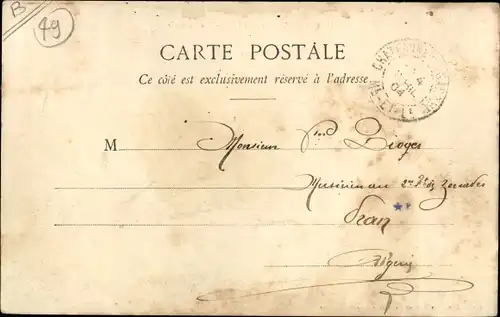 B
49
CARTE POSTALE
Ce côté est exclusivement réservé à l'adresse
M Monsieur Droger
Musicien au 2me Rt de Zouaves
Oran
Algérie